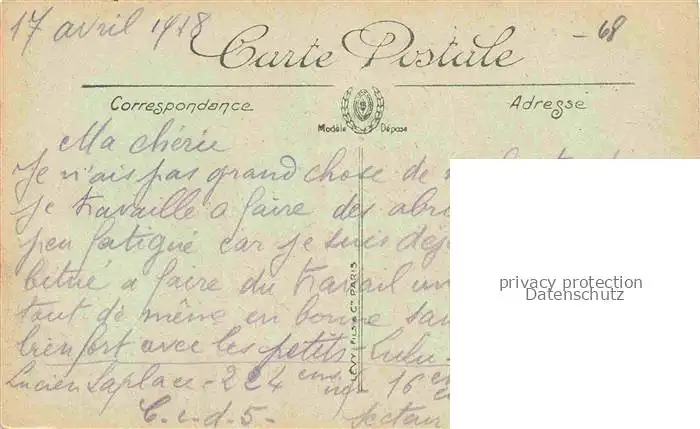 17 avril 1918
- 68
Carte Postale
Correspondance
Adresse
Modèle Déposé
Ma chérie
Je n'ais pas grand chose de
je travaille a faire des abri
peu fatigué car je suis déj
bitué a faire du travail
tout de même en bonne san
bien fort avec les petits Lulu.
Lucien Laplace - 16
C. - d. 5 - Secteur
LEVY FILS & Cie PARIS
privacy protection
Datenschutz